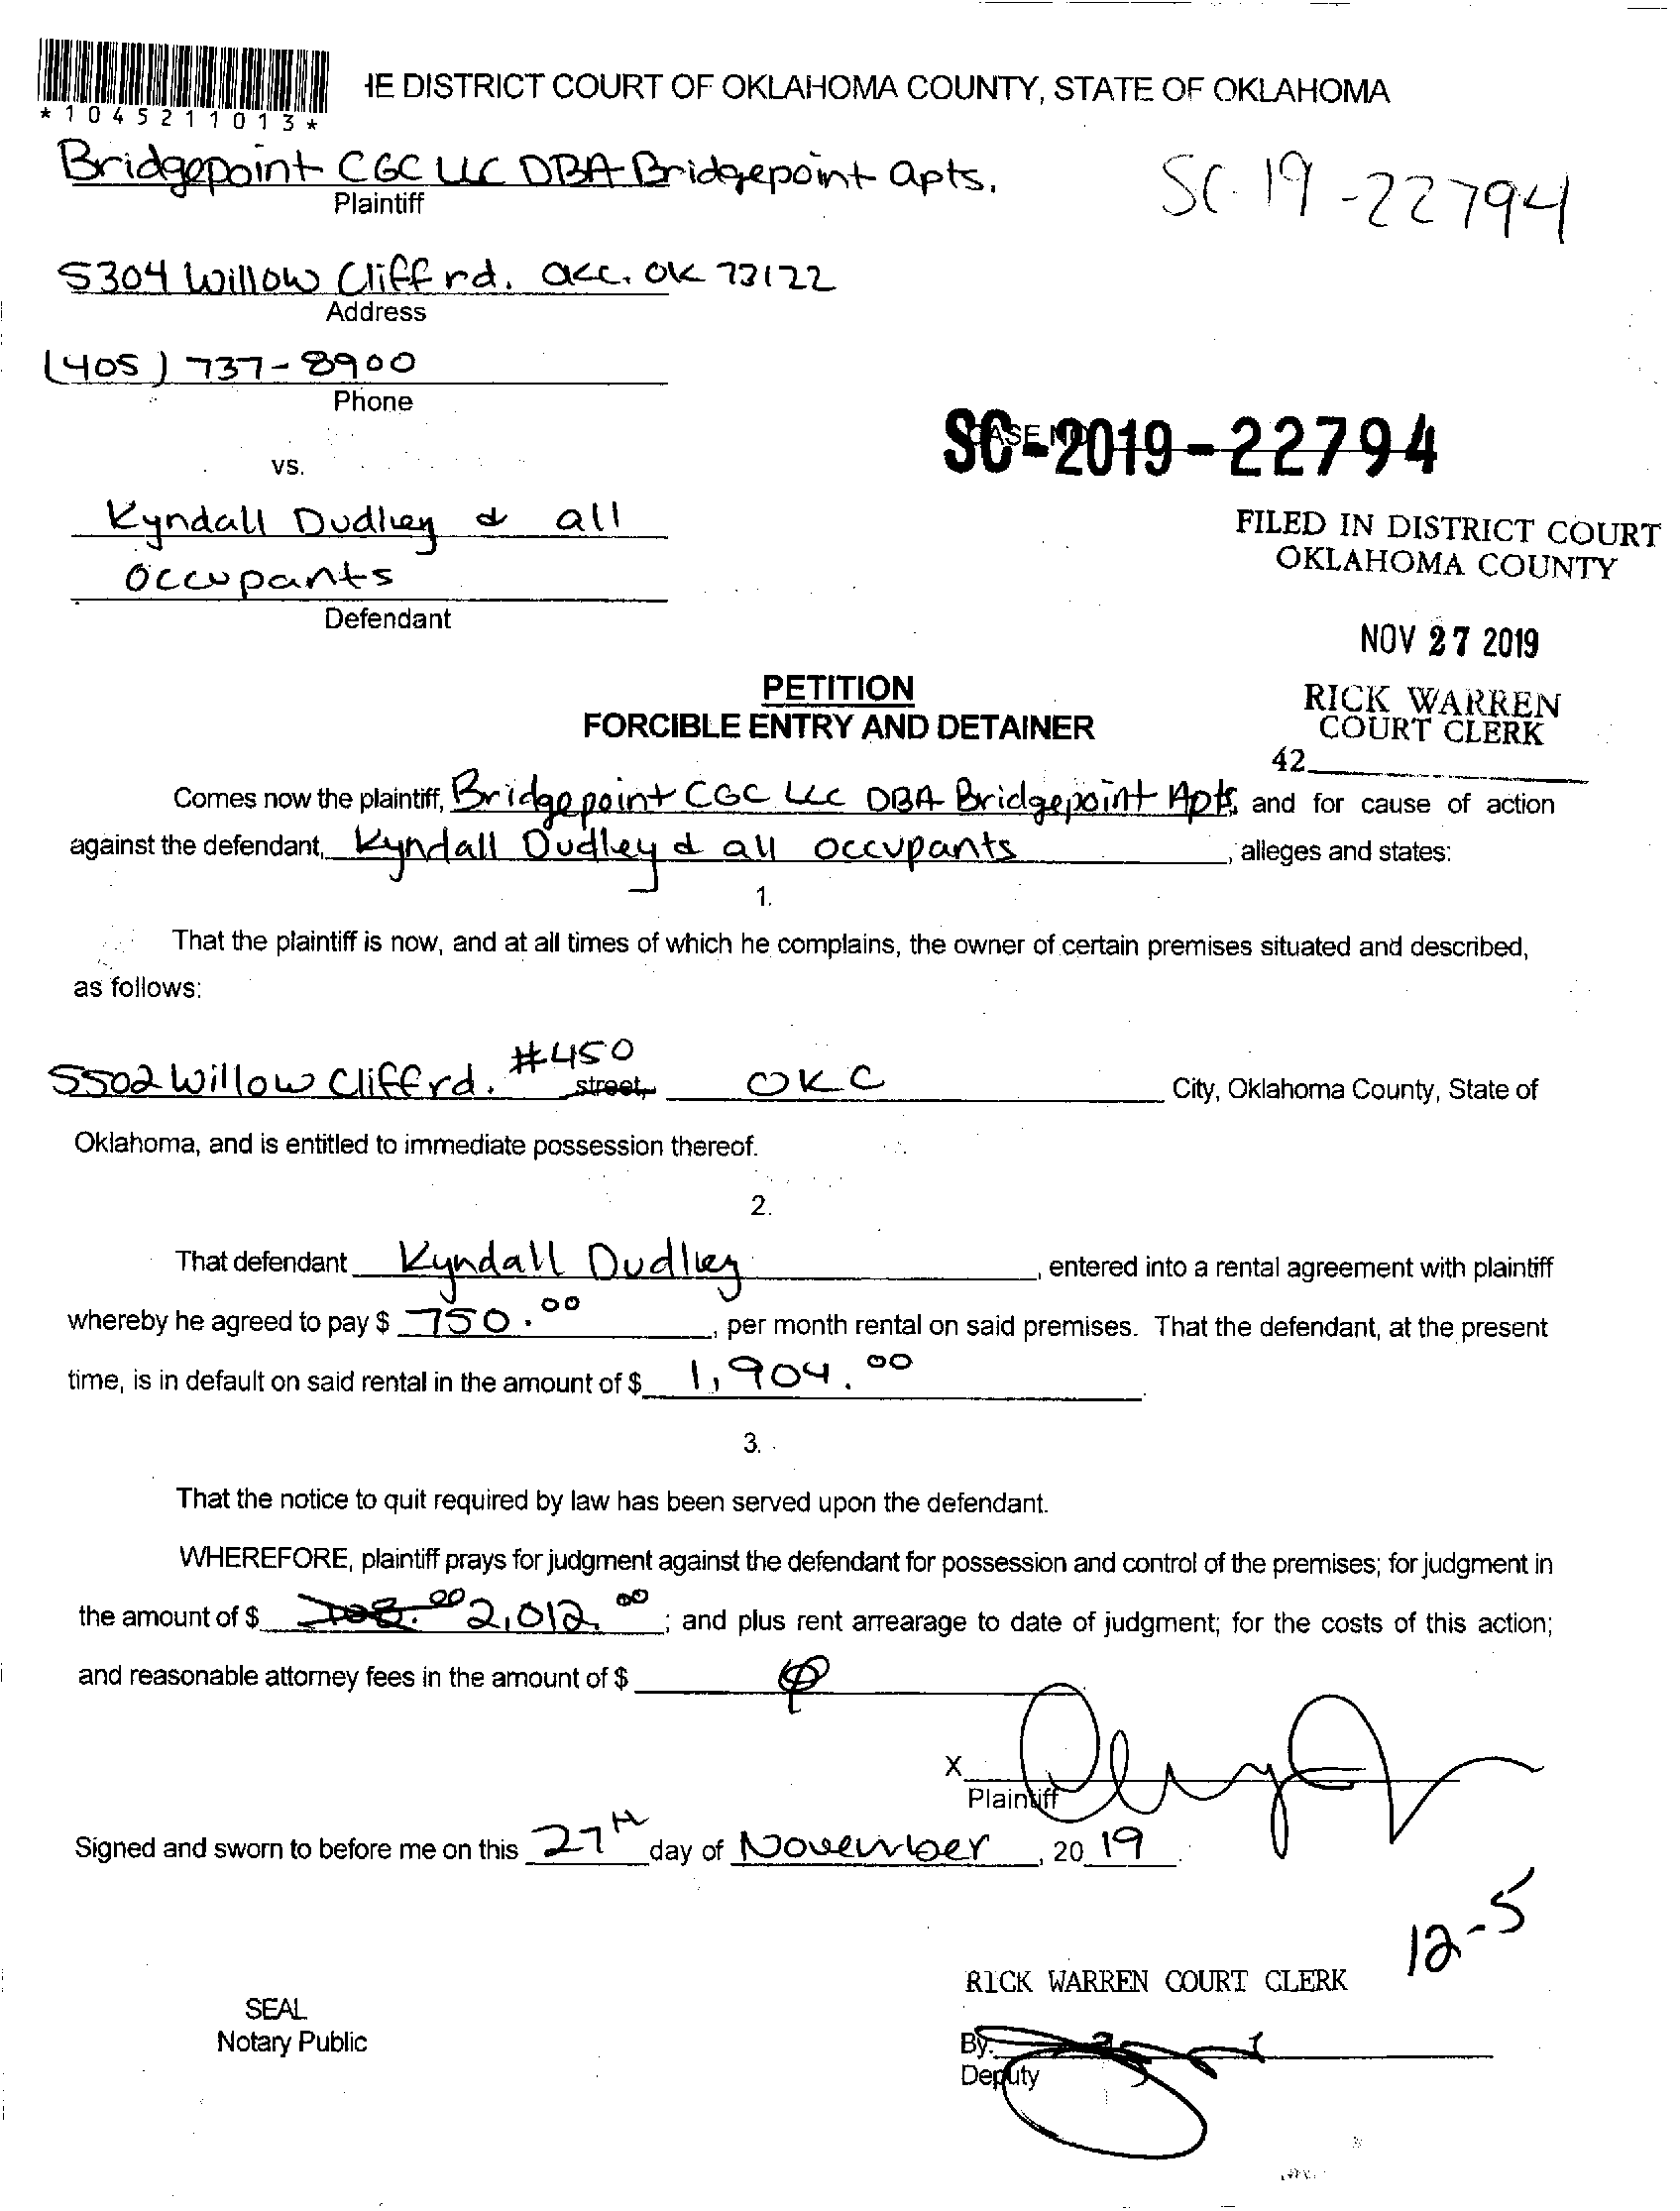 IE DISTRICT COURT OF OKLAHOMA COUNTY, STATE OF OKLAHOMA
*1045211013*
Bridgepoint CGC LLC DBA Bridgepoint Apts.
Plaintiff
SC-19-22794
5304 Willow Cliff rd. OKC. OK 73122
Address
(405) 737-8900
Phone
CASE NO.
SC-2019-22794
vs.
Kyndall Dudley & all
occupants
Defendant
FILED IN DISTRICT COURT
OKLAHOMA COUNTY
NOV 27 2019
RICK WARREN
COURT CLERK
42
PETITION
FORCIBLE ENTRY AND DETAINER
Comes now the plaintiff, Bridgepoint CGC LLC DBA Bridgepoint Apts, and for cause of action
against the defendant, Kyndall Dudley & all occupants, alleges and states:
1.
That the plaintiff is now, and at all times of which he complains, the owner of certain premises situated and described,
as follows:
5502 Willow Cliff rd. #450 street, OKC City, Oklahoma County, State of
Oklahoma, and is entitled to immediate possession thereof.
2.
That defendant Kyndall Dudley, entered into a rental agreement with plaintiff
whereby he agreed to pay $ 750.00, per month rental on said premises. That the defendant, at the present
time, is in default on said rental in the amount of $ 1,904.00.
3.
That the notice to quit required by law has been served upon the defendant.
WHEREFORE, plaintiff prays for judgment against the defendant for possession and control of the premises; for judgment in
the amount of $ 2,012.00; and plus rent arrearage to date of judgment; for the costs of this action;
and reasonable attorney fees in the amount of $
X
Plaintiff
Signed and sworn to before me on this 27th day of November, 20 19.
12-5
RICK WARREN COURT CLERK
SEAL
Notary Public
By:
Deputy